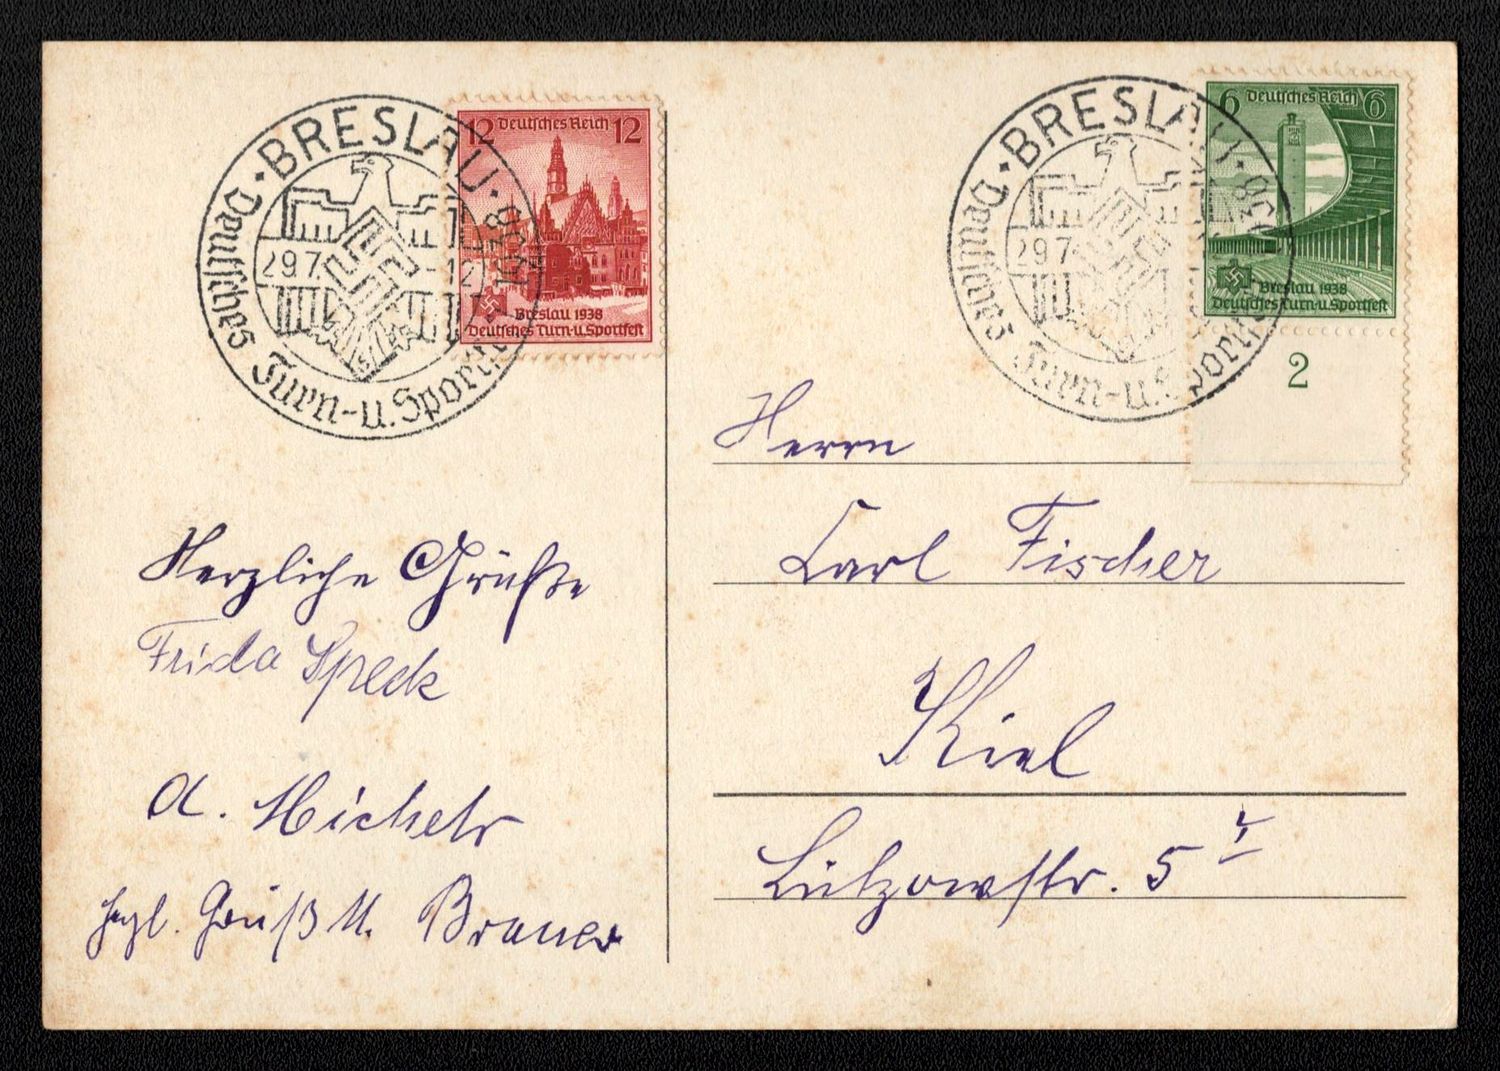 BRESLAU
29.7.1938 -12
Deutsches Turn-u. Sport
12 Deutsches Reich 12
Breslau 1938
Deutsches Turn-u. Sportfest
BRESLAU
29.7 1938
Deutsches Turn-u. Sport
6 Deutsches Reich 6
Breslau 1938
Deutsches Turn-u. Sportfest
2
Herzliche Grüße
Frida Speck
A. Michels
Hzgl. Gruß M. Brauer
Herrn
Carl Fischer
Kiel
Lützowstr. 5 I